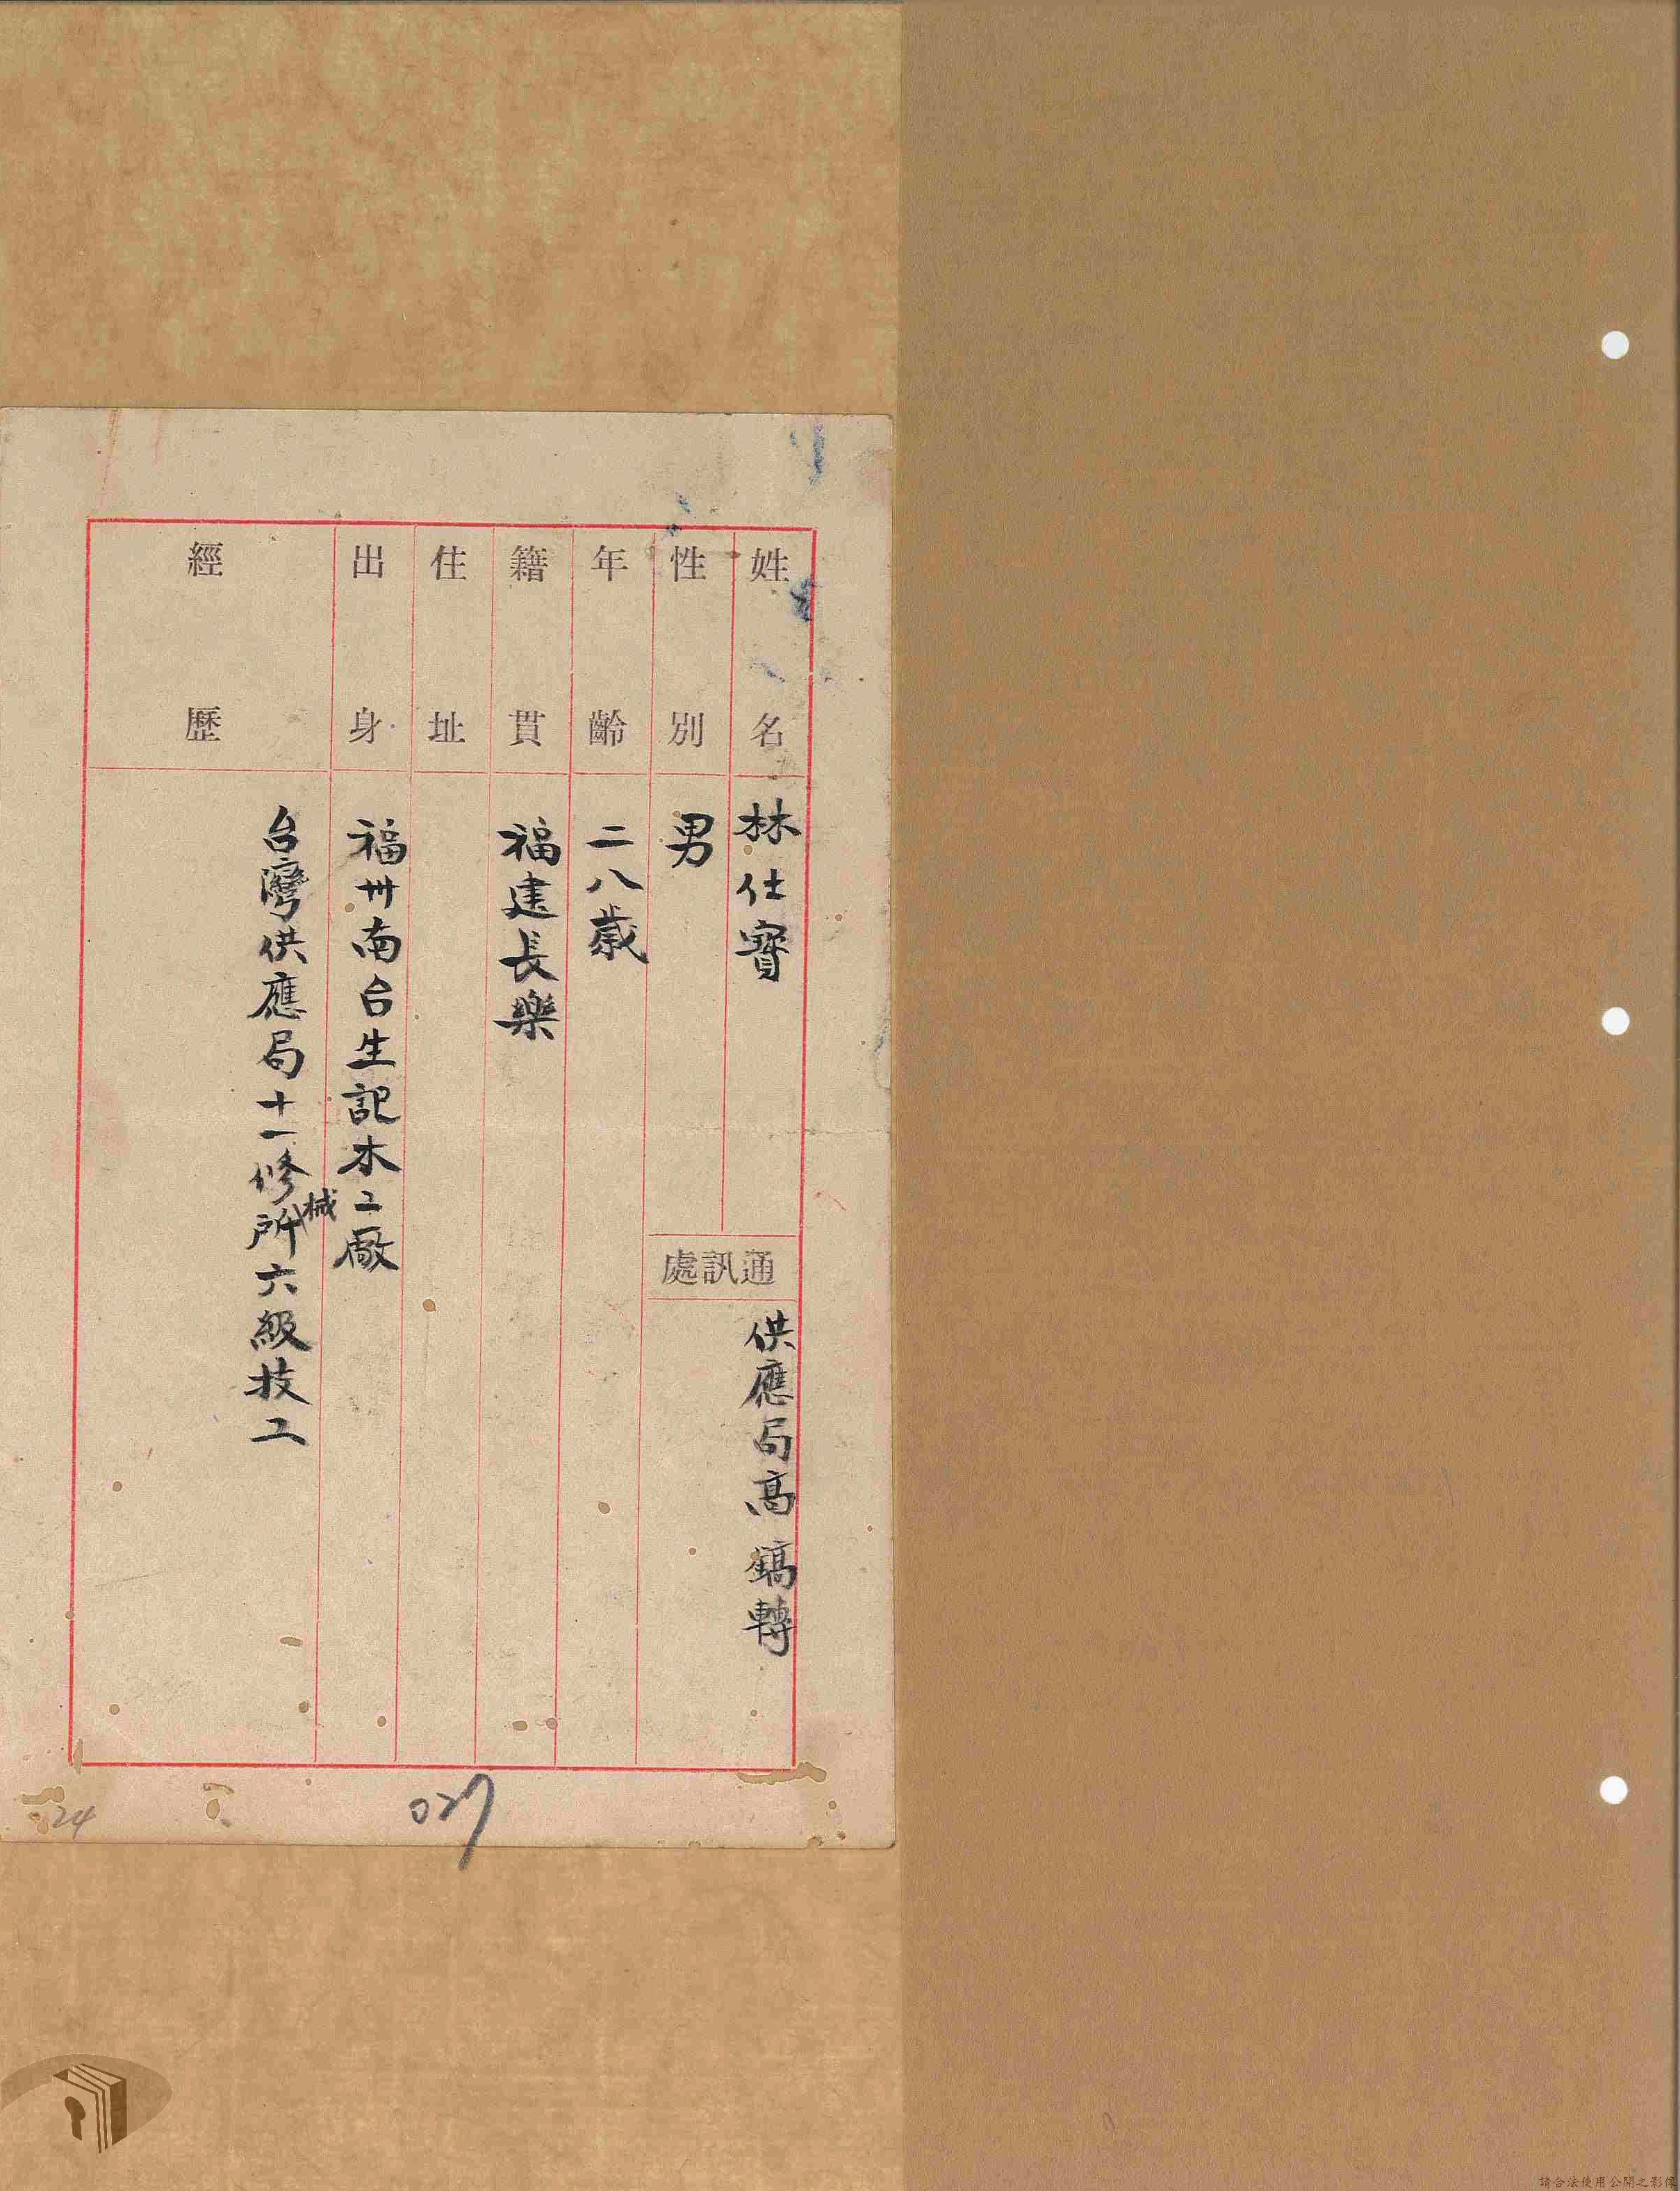 姓名 林仕寶
通訊處 供應局高鎬轉
性別 男
年齡 二八歲
籍貫 福建長樂
住址
出身 福州南台生記木工廠
經歷 台灣供應局十一修械所六級技工
027
24
請合法使用公開之影像